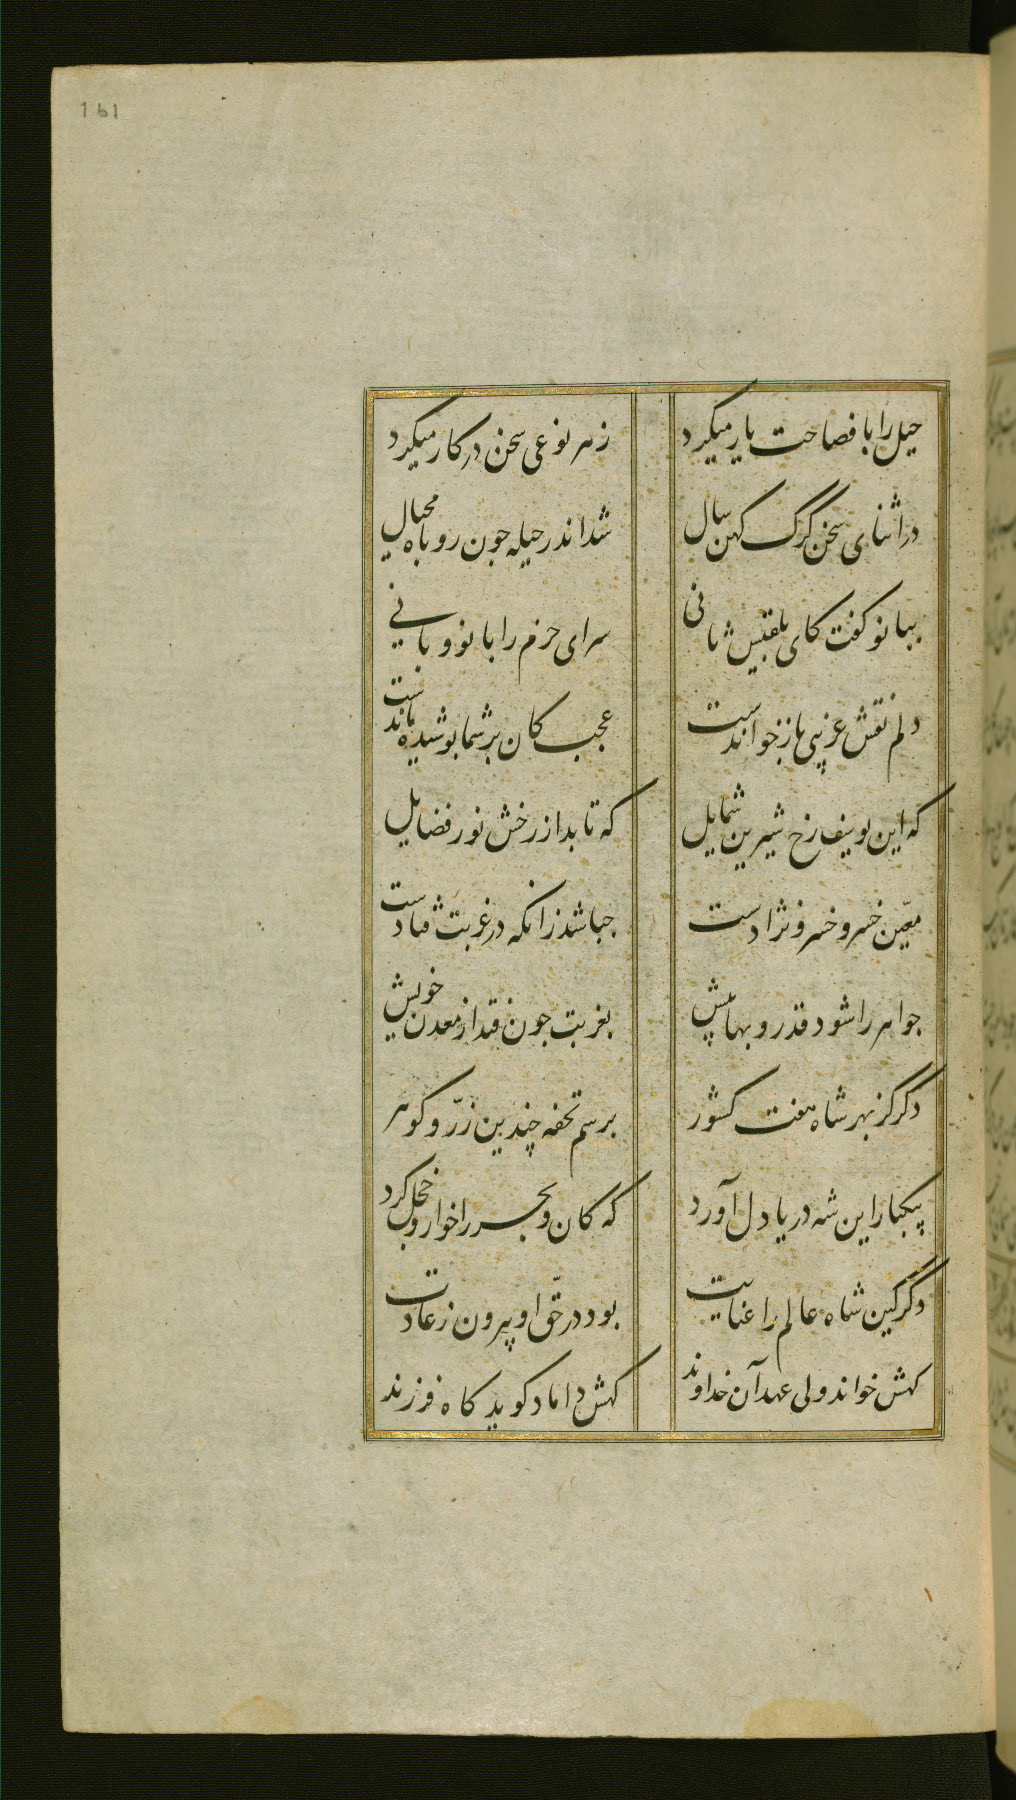 161
حیل را با فصاحت یار میکرد
زهر نوعی سخن در کار میکرد
در اثنای سخن گرگ کهن سال
شد اندر حیله جون روباه محیال
ببانو کفت کای بلقیس ثانی
سرای حزم را بانو و بانی
دلم نقش عزیبی باز خواندست
عجب کان بر شما بوشیده ماندست
که این یوسف رخ شیرین شمایل
که تابد از رخش نور فضایل
معیّن خسرو خسرو نژادست
جباشد زانکه در غربت فتادست
جواهر را شود قدر و بها بیش
بغربت جون فتد از معدن خویش
دکر کز بهر شاه هفت کشور
برسم تحفه چندین زرّ و کوهر
پیکبار این شه دریا دل آورد
که کان و بحر را خوار و خجل کرد
دکر کین شاه عالم را عنایت
بود در حقّ او بیرون ز عادت
کهش خواند ولی عهد آن خداوند
کهش داماد کوید کاه فرزند